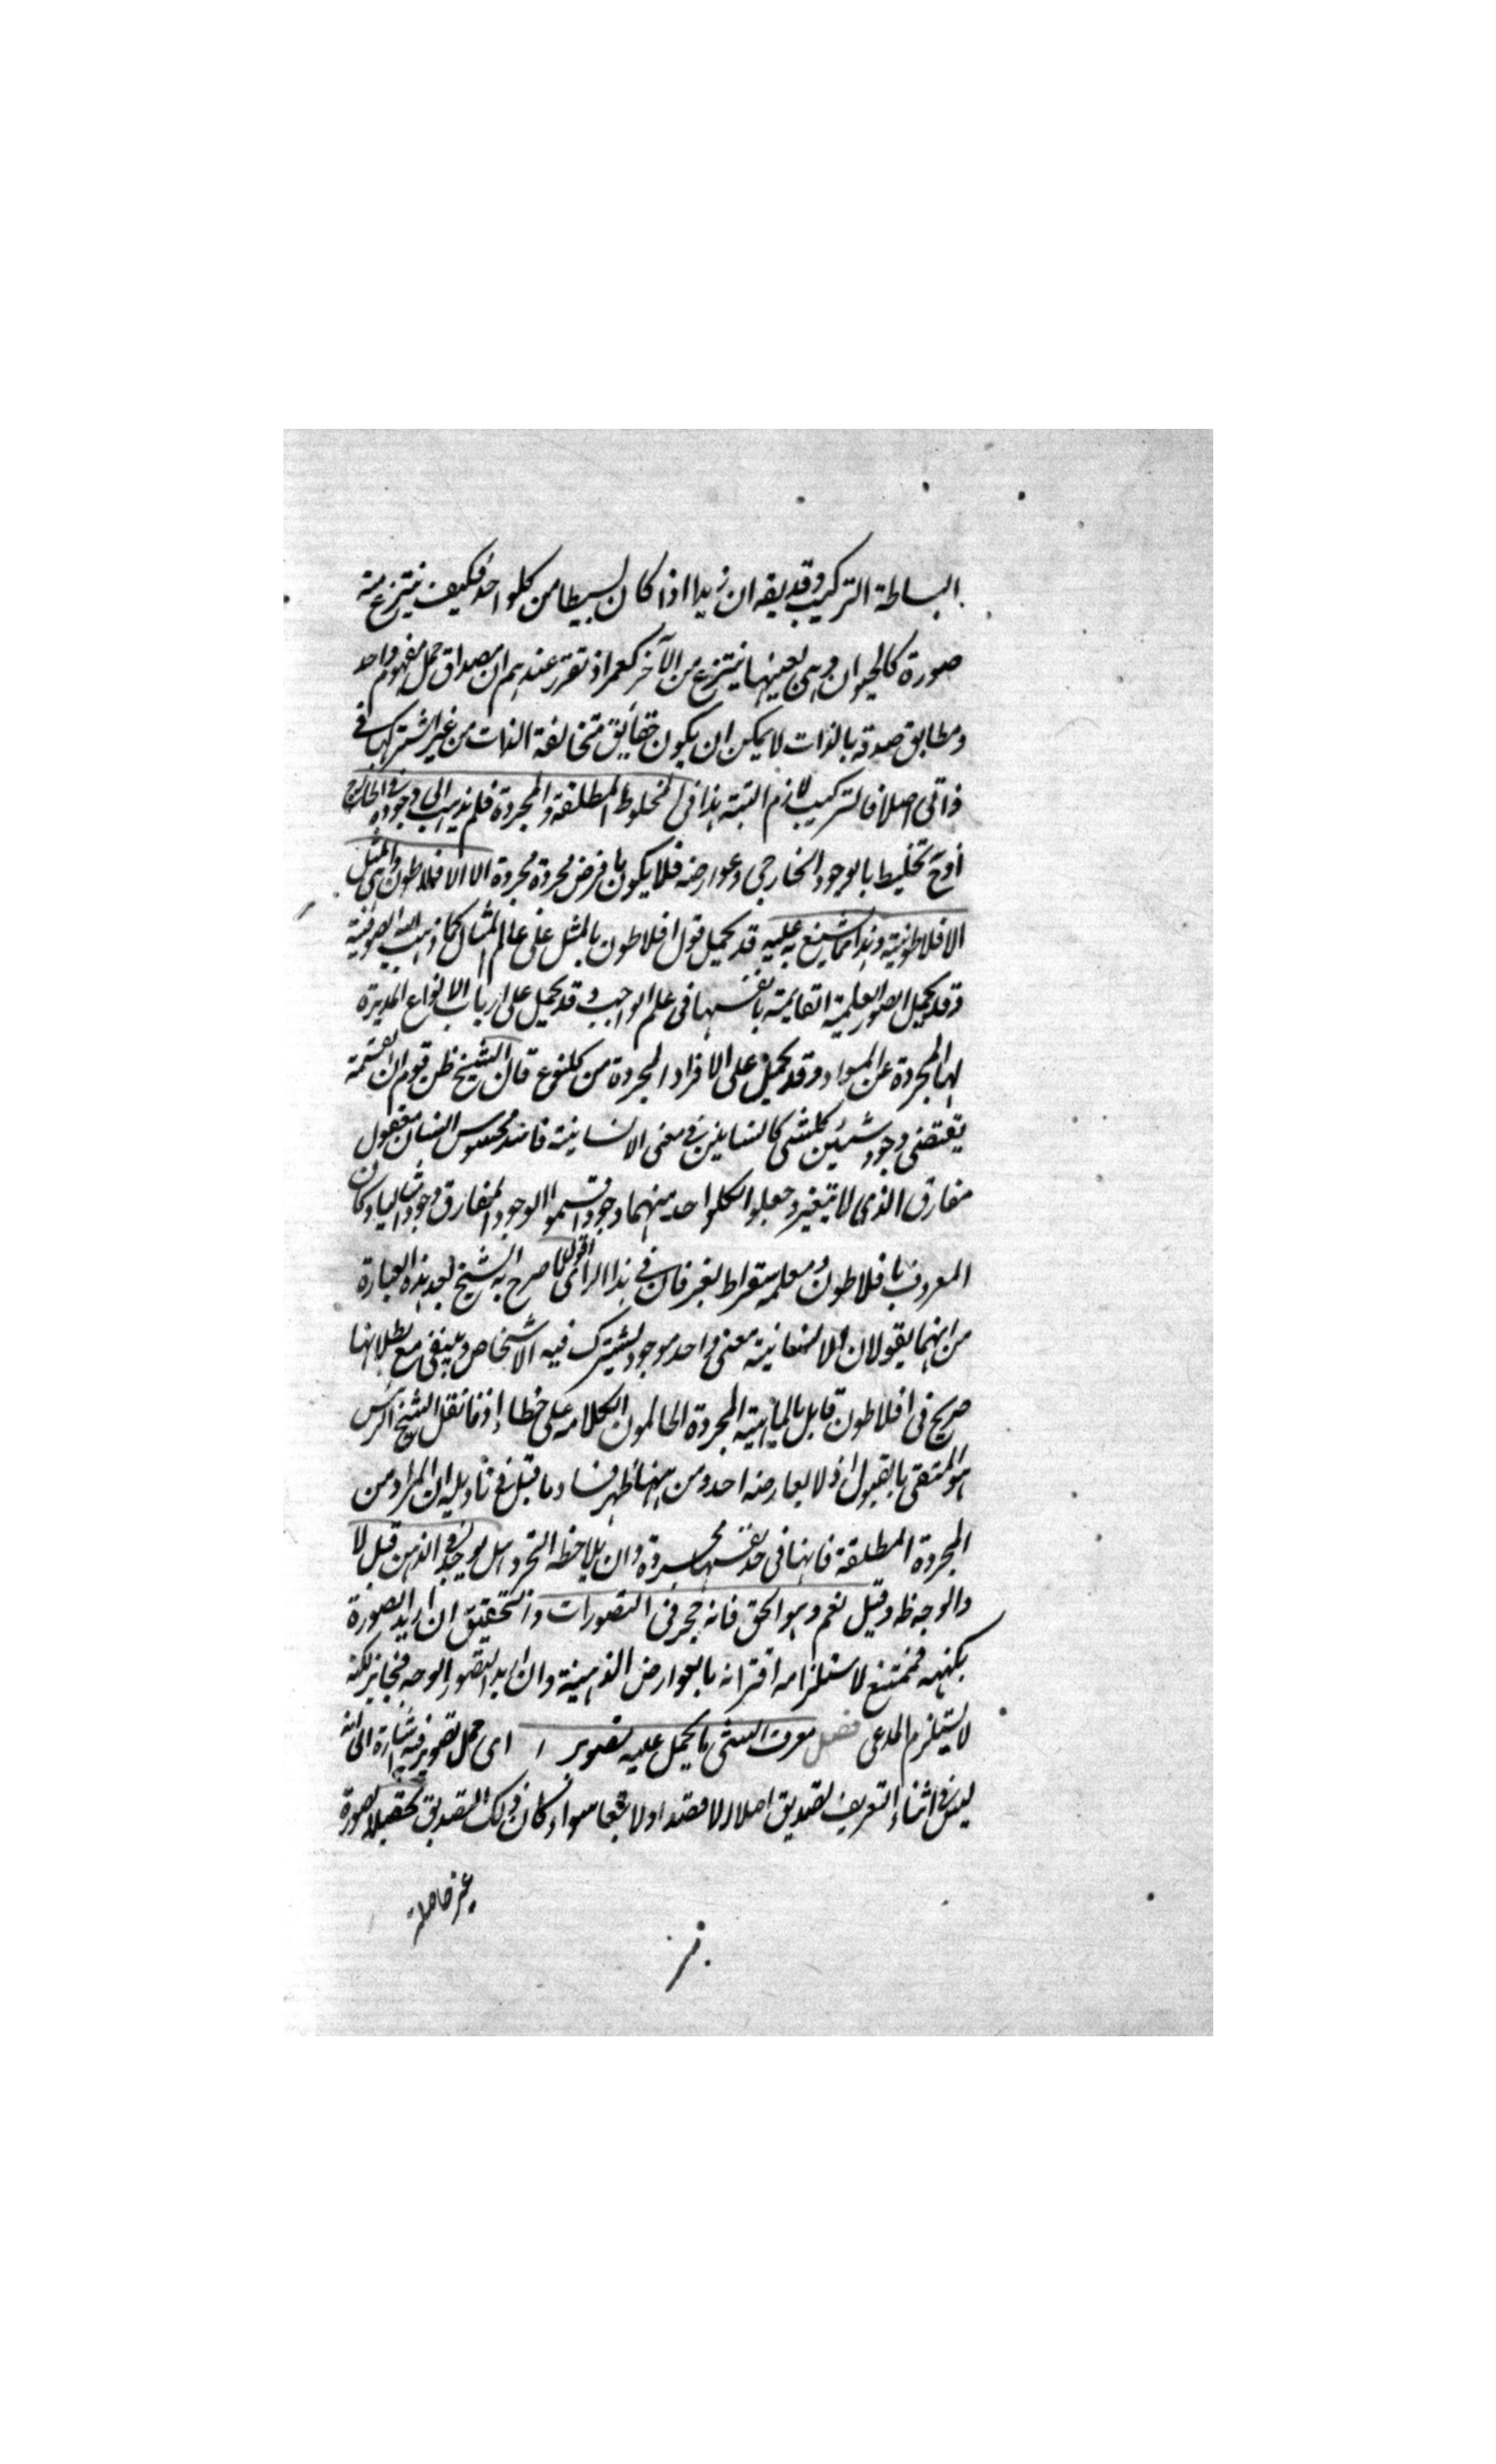 البساطة التركيب وقد يقه ان زيدا اذا كان بسيطا من كلواحد فكيف ينتزع منه
صورة كالحيوان وهى بعينها ينتزع من الآخر كعمر اذ تقرر عندهم ان مصداق حمل مفهوم واحد
ومطابق صدقه بالذات لا يمكن ان يكون حقايق متخالفة الذات من غير اشتراكها فى
ذاتى اصلا فالتركيب لازم البتة هذا فى المخلوطة المطلقة والمجردة فلم يذهب الى وجوده فى الخارج
اذ ح تخليط بالوجود الخارجى وعوارضه فلا يكون ما فرض مجردة مجردة الا افلاطون وهى المثل
الافلاطونية وهذا مما يشنع به عليه قد يحمل قول افلاطون بالمثل على عالم المثال كما ذهب اليه الصوفية
وقد يحمل الصور العلمية القايمة بانفسها فى علم الواجب وقد يحمل على ارباب الانواع المدبرة
لها المجردة عن المواد وقد يحمل على الافراد المجردة من كلنوع قال الشيخ ظن قوم ان القسمة
يقتضى وجود شيئين كلشى كانسانين فى معنى الانسانية فاسد محسوس انسان معقول
مفارق الذى لا يتغير وجعلوا لكلواحد منهما وجودا قسموا الوجود المفارق وجودا مثاليا وكان
المعروف بافلاطون ومعلمه سقراط يفرطان فى هذا الراى اقول ما صرح به الشيخ بعد هذه العبارة
من انهما يقولان للانسانية معنى واحد موجود يشترك فيه الاشخاص ويبقى مع بطلانها
صريح فى افلاطون قايل بالماهية المجردة الحاملون لكلامه على خطاء اذ ما نقل الشيخ الرئس
هو المتقى بالقبول اذ لا يعارضه احد ومن ههنا ظهر فساد ما قيل فى تاويله ان المراد من
المجردة المطلقة فانها فى حد نفسها مجردة وان يلاحظه التجرد هل يوجد فى الذهن قيل لا
والوجه ظه وقيل نعم وهو الحق فانه لا حجر فى التصورات والتحقيق ان اريد الصورة
بكنهه فممتنع لاستلزامه اقترانه بالعوارض الذهنية وان اريد التصور بالوجه فجايز لكنه
لا يستلزم المدعى فصل معرف الشى ما يحمل عليه تصويرا اى حمل تصوير فيه اشارة الى انه
ليس فى اثناء التعريف تصديق اصلا لا قصدا ولا تبعا سواء كان ذلك التصديق تحصيلا لصورة
غير حاصلة